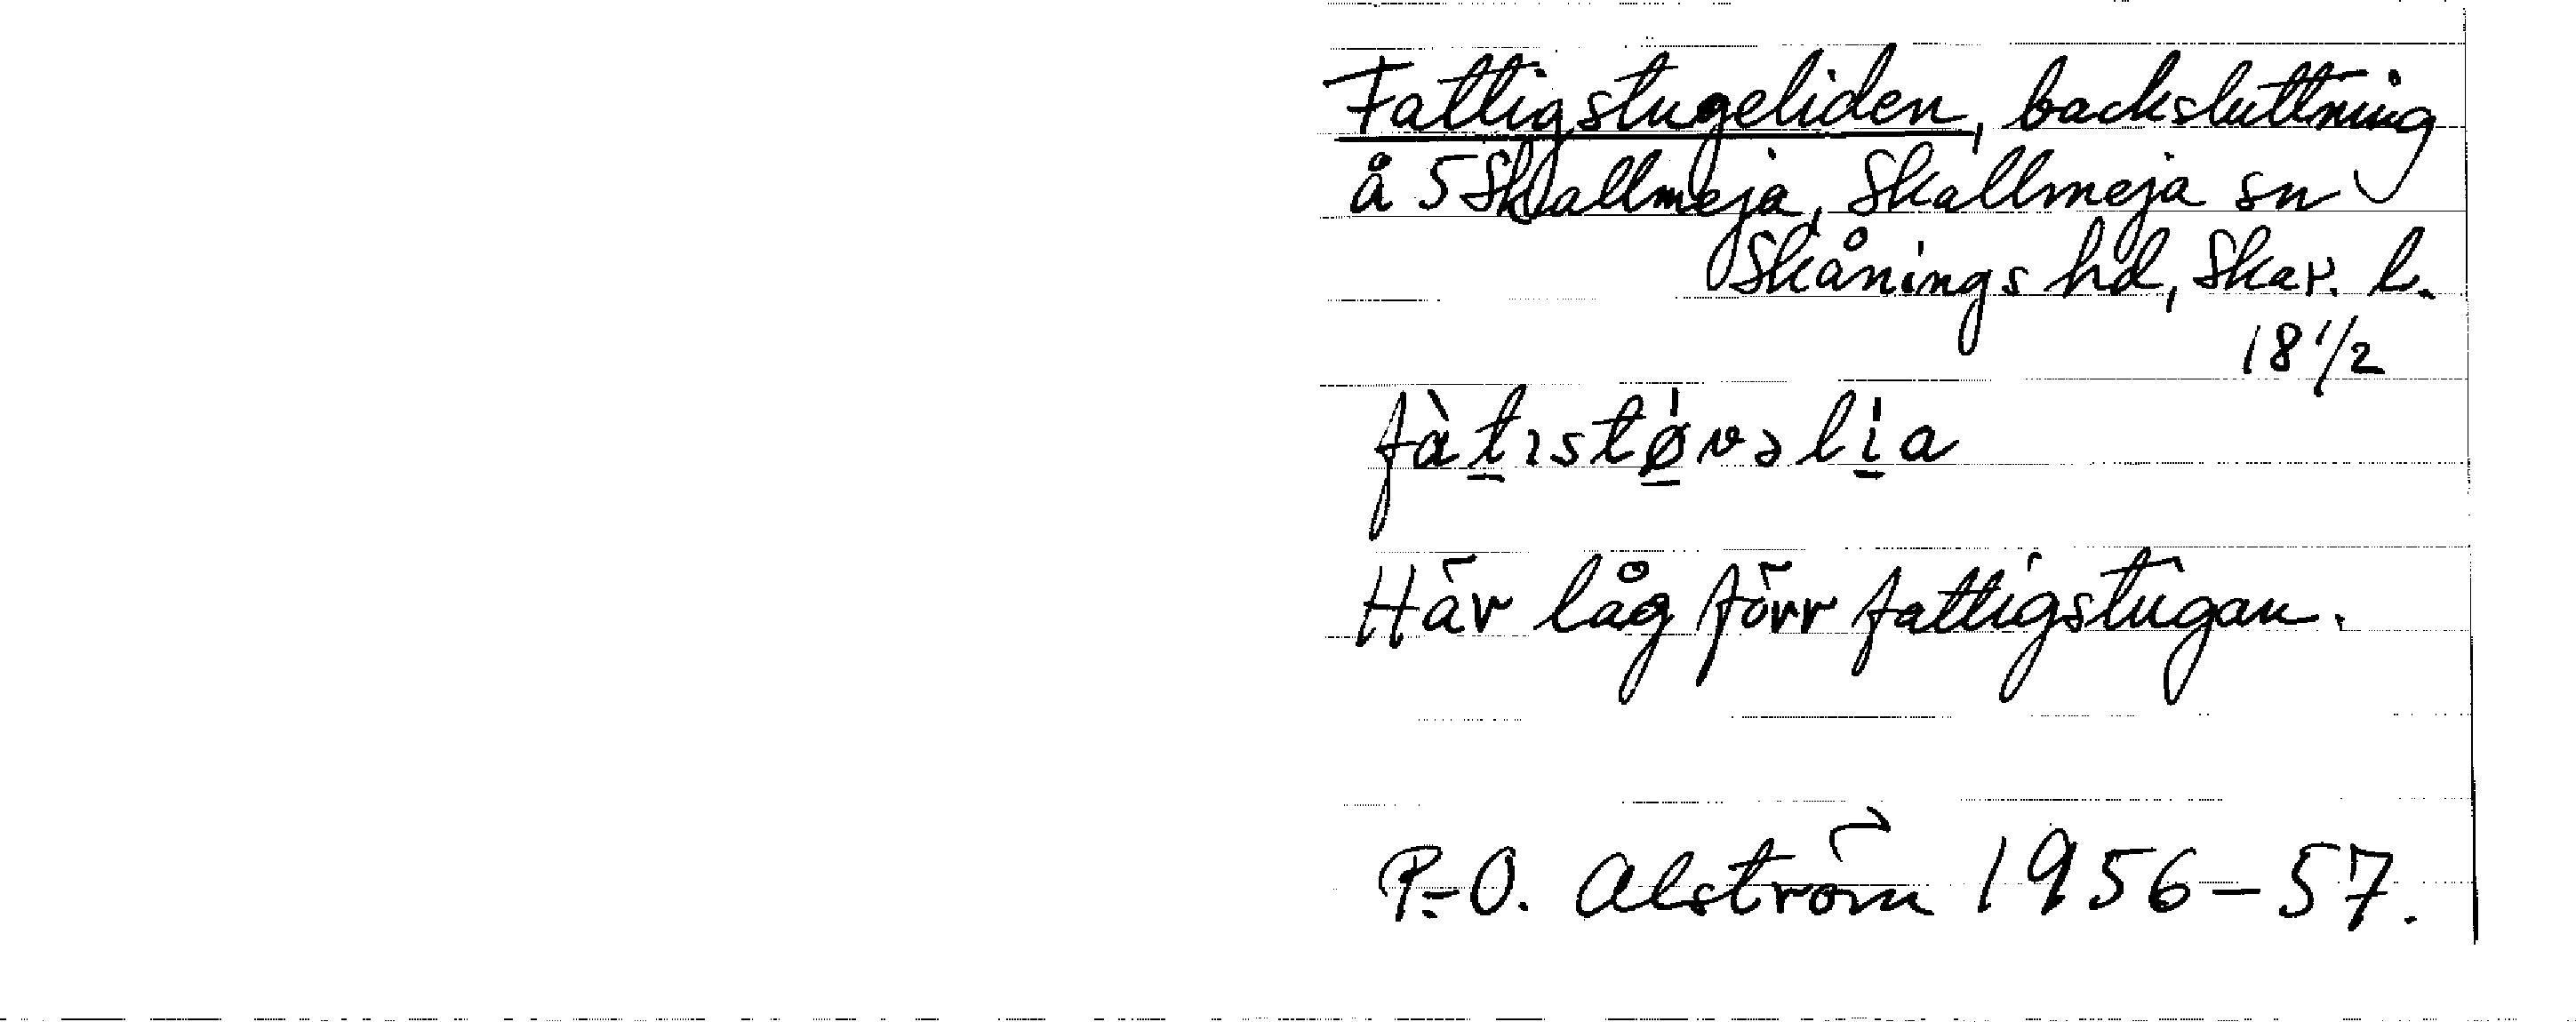 Fattigstugeliden, backsluttning
å 5 Skallmeja, Skallmeja sn
Skånings hd, Skar. l.
18 1/2
fàtıstøvəlia
Här låg förr fattigstugan.
P.-O. Alström 1956-57.